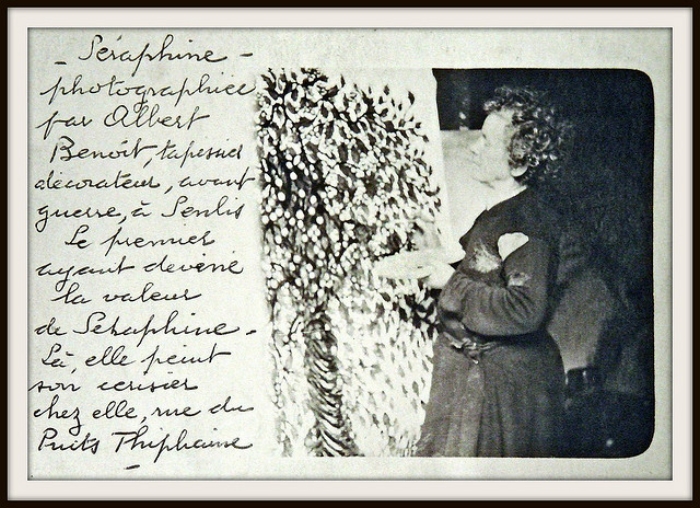 - Séraphine -
photographiée
par Albert
Benoît, tapissier
décorateur, avant
guerre, à Senlis
Le premier
ayant deviné
la valeur
de Séraphine -
Là, elle peint
son cerisier
chez elle, rue du
Puits Thiphaine